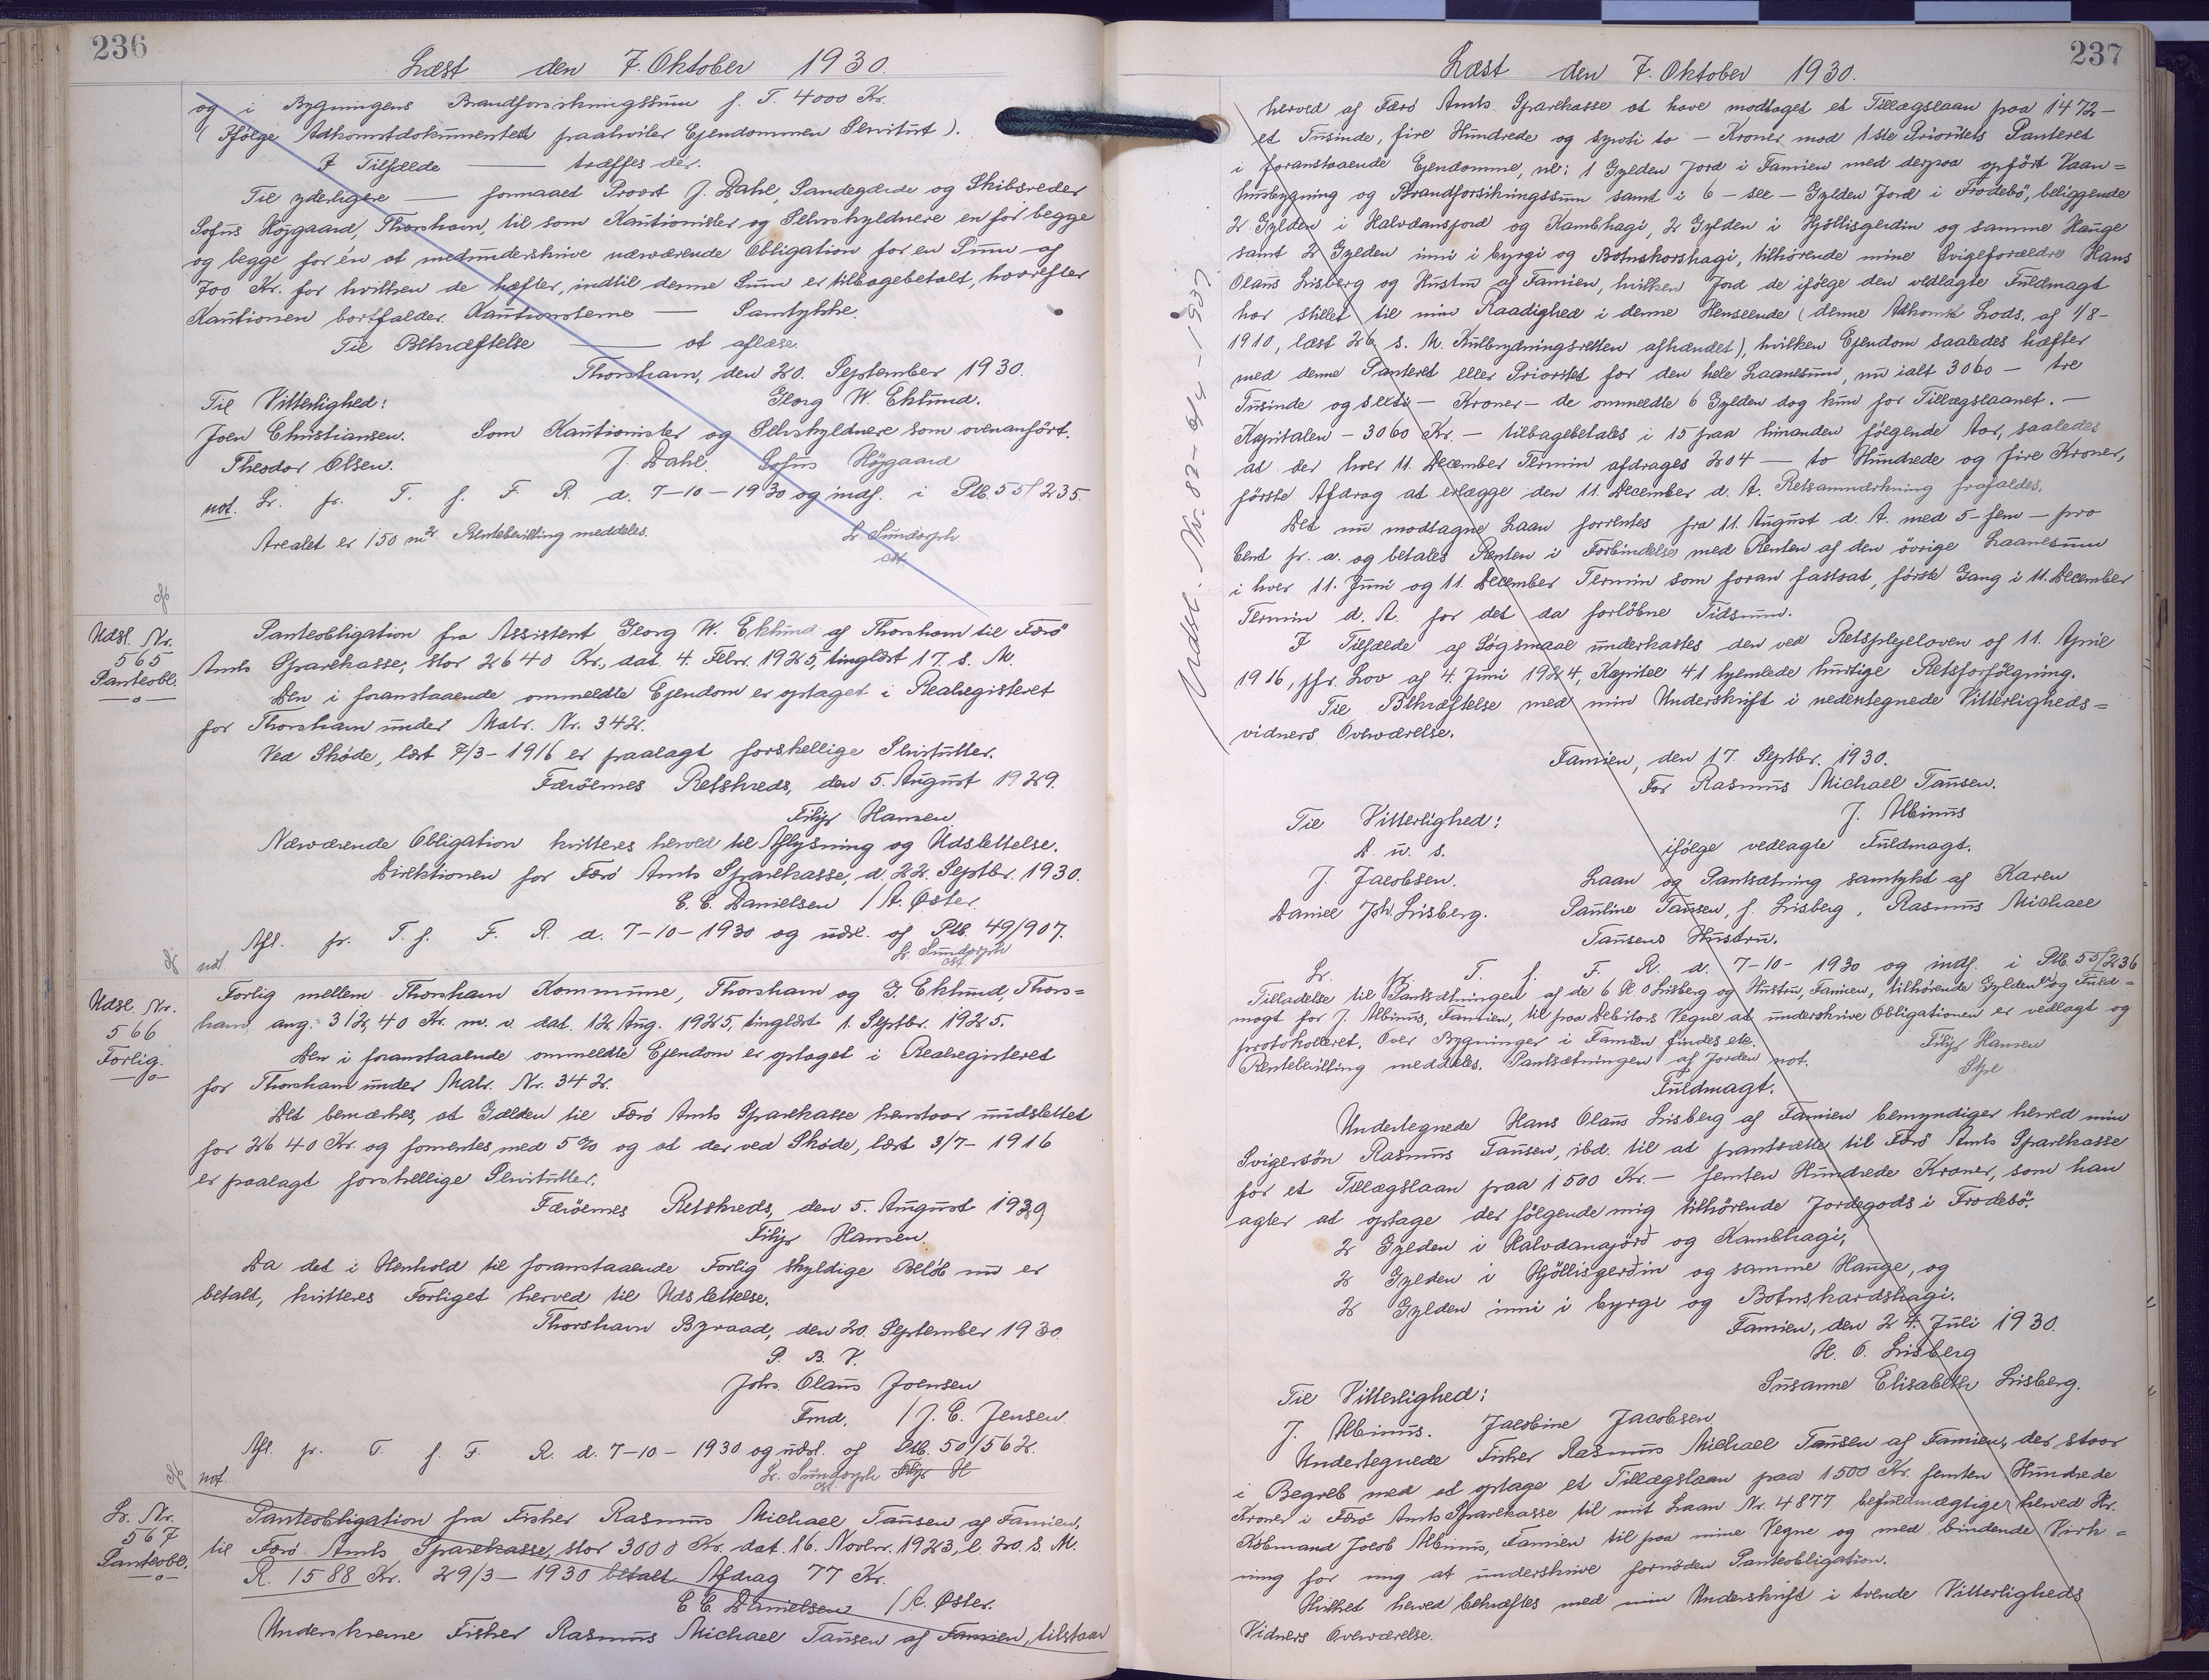 236
Læst den 7. Oktober 1930.
og i Bygningens Brandforsikringssum f. T. 4000 Kr.
(Ifølge Adkomstdokumentet paahviler Ejendommen Servitut).
I Tilfælde — træffes der.
Til yderligere — formaaet Provst J. Dahl, Sandegærde og Skibsreder
Sofus Højgaard, Thorshavn, til som Kautionister og Selvskyldnere en for begge
og begge for én at medunderskrive nærværende Obligation for en Sum af
700 Kr. for hvilken de hæfter, indtil denne Sum er tilbagebetalt, hvorefter
Kautionen bortfalder. Kautionisterne — Samtykke.
Til Bekræftelse — at aflæse.
Thorshavn, den 20. September 1930.
Til Vitterlighed: Georg W. Eklund.
Joen Christiansen. Som Kautionister og Selvskyldnere som ovenanført.
Theodor Olsen. J. Dahl. Sofus Højgaard
not. Lr. fr. T. f. F. R. d. 7-10-1930 og indf. i Ptb. 55/235.
Arealet er 150 m2. Rentebevilling meddeles. Lr Sundorph
cst.
Udsl. Nr.
565
Panteobl.
Panteobligation fra Assistent Georg W. Eklund af Thorshavn til Færö
Amts Sparekasse, stor 2640 Kr., dat. 4. Febr. 1925, tinglæst 17. s. M.
Den i foranstaaende ommeldte Ejendom er optaget i Realregisteret
for Thorshavn under Matr. Nr. 342.
Ved Skøde, læst 7/3-1916 er paalagt forskellige Servitutter.
Færöernes Retskreds, den 5. August 1929.
Filip Hansen
Nærværende Obligation kvitteres herved til Aflysning og Udslettelse.
Direktionen for Færö Amts Sparekasse, d. 22. Septbr. 1930.
C. C. Danielsen / A. Øster.
not. Afl. fr. T. f. F. R. d. 7-10-1930 og udsl. af Ptb. 49/907.
Lr. Sundorph
cst
Udsl. Nr.
566
Forlig.
Forlig mellem Thorshavn Kommune, Thorshavn og G. Eklund, Thors=
havn, ang. 312,40 Kr. m. v. dat. 12. Aug. 1925, tinglæst 1. Septbr. 1925.
Den i foranstaaende ommeldte Ejendom er optaget i Realregisteret
for Thorshavn under Matr. Nr. 342.
Det bemærkes, at Gælden til Færö Amts Sparekasse henstaar uudslettet
for 2640 Kr. og forrentes med 5% og at der ved Skøde, læst 3/7-1916
er paalagt forskellige Servitutter.
Færöernes Retskreds, den 5. August 1929
Filip Hansen.
Da det i Henhold til foranstaaende Forlig skyldige Beløb nu er
betalt, kvitteres Forliget herved til Udslettelse.
Thorshavn Byraad, den 20. September 1930.
P. B. V.
Johs. Olaus Joensen
Fmd. / J. C. Jensen.
Afl. fr. T. f. F. R. d. 7-10-1930 og udsl. af Ptb. 50/562.
not. Lr. Sundorph Filip H
cst.
Lr. Nr.
567
Panteobl.
Panteobligation fra Fisker Rasmus Michael Tausen af Famien,
til Færö Amts Sparekasse, stor 3000 Kr. dat. 16. Novbr. 1923, l. 20. s. M.
R. 1588 Kr. 29/3-1930 betalt Afdrag 77 Kr.
C. C. Danielsen / A. Øster.
Underskrevne Fisker Rasmus Michael Tausen af Famien, tilstaar
237
Læst den 7. Oktober 1930.
Udsl. Nr. 82 - 6/4 - 1937
herved af Færö Amts Sparekasse at have modtaget et Tillægslaan paa 1472-
et Tusinde, fire Hundrede og syvti to - Kroner mod 1ste Prioritets Panteret
i foranstaaende Ejendomme, nl: 1 Gylden Jord i Famien med derpaa opført Vaan=
husbygning og Brandforsikringssum samt i 6 - sex - Gylden Jord i Frodebö, beliggende
2 Gylden i Halvdansjord og Kambhagi, 2 Gylden i Hjøllisgerdin og samme Hauge
samt 2 Gylden inni i byrgi og Botnskorshagi, tilhørende mine Svigeforældre Hans
Olaus Lisberg og Hustru af Famien, hvilken Jord de ifølge den vedlagte Fuldmagt
har stillet til min Raadighed i denne Henseende (denne Adkomst Lods. af 1/8-
1910, læst 26 s. M. Kulbrydningsretten afhændet), hvilken Ejendom saaledes hæfter
med denne Panteret eller Prioritet for den hele Laanesum, nu ialt 3060 - tre
Tusinde og sexti - Kroner - de ommeldte 6 Gylden dog kun for Tillægslaanet. -
Kapitalen - 3060 Kr. - tilbagebetales i 15 paa hinanden følgende Aar, saaledes
at der hver 11. December Termin afdrages 204 - to Hundrede og fire Kroner,
første Afdrag at erlægge den 11. December d. A. Retsanmærkning frafaldes.
Det nu modtagne Laan forrentes fra 11. August d. A. med 5 - fem - pro
Cent pr. a. og betales Renten i Forbindelse med Renten af den øvrige Laanesum
i hver 11. Juni og 11. December Termin som foran fastsat, første Gang i 11. December
Termin d. A. for det da forløbne Tidsrum.
I Tilfælde af Søgsmaal underkastes den ved Retsplejeloven af 11. April
1916, jfr. Lov af 4. Juni 1924, Kapitel 41 hjemlede hurtige Retsforfølgning.
Til Bekræftelse med min Underskrift i nedentegnede Vitterligheds=
vidners Overværelse.
Famien, den 17. Septbr. 1930.
For Rasmus Michael Tausen.
Til Vitterlighed: J. Albinus
D. u. s. ifølge vedlagte Fuldmagt.
J. Jacobsen. Laan og Pantsætning samtykt af Karen
Daniel Joh. Lisberg. Pauline Tausen, f. Lisberg, Rasmus Michael
Tausens Hustru.
Lr. fr. T. f. F. R. d. 7-10-1930 og indf. i Ptb. 55/236
Tilladelse til Pantsætningen af de 6 H. O Lisberg og Hustru, Famien, tilhørende Gylden og Fuld=
magt for J. Albinus, Famien, til paa Debitors Vegne at underskrive Obligationen er vedlagt og
protokolleret. Over Bygninger i Famien findes etc. Filip Hansen
Rentebevilling meddeles. Pantsætningen af Jorden not. Stpl
Fuldmagt.
Undertegnede Hans Olaus Lisberg af Famien bemyndiger herved min
Svigersön Rasmus Tausen, ibd. til at pantsætte til Færö Amts Sparekasse
for et Tillægslaan paa 1500 Kr. - femten Hundrede Kroner, som han
agter at optage der følgende mig tilhørende Jordegods i Frodebö:
2 Gylden i Halvdanajörð og Kambhagi,
2 Gylden i Hjöllisgerðin og samme Hauge, og
2 Gylden inni i byrgi og Botnskardshagi.
Famien, den 24. Juli 1930.
H. O. Lisberg
Til Vitterlighed: Susanne Elisabeth Lisberg.
J. Albinus. Jacobine Jacobsen
Undertegnede Fisker Rasmus Michael Tausen af Famien, der staar
i Begreb med at optage et Tillægslaan paa 1500 Kr. femten Hundrede
Kroner i Færö Amts Sparekasse til mit Laan Nr. 4877 befuldmægtiger herved Hr.
Købmand Jacob Albinus, Famien til paa mine Vegne og med bindende Virk=
ning for mig at underskrive fornøden Panteobligation.
Hvilket herved bekræftes med min Underskrift i tvende Vitterligheds
Vidners Overværelse.